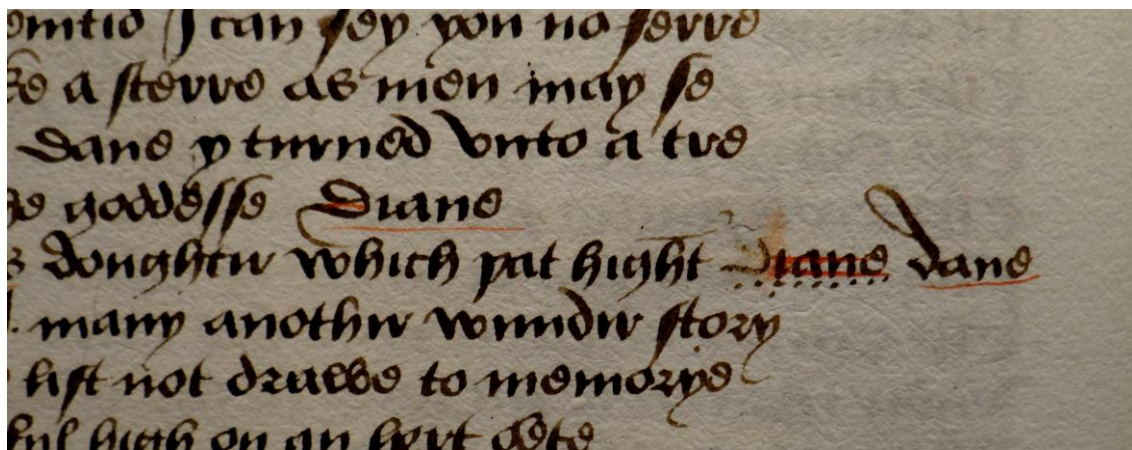 I can sey you no ferre
a sterre as men may se
dane y turned vnto a tre
goddesse Diane
doughtir which þat hight Diane dane
many anothir wundir story
list not drawe to memorye
high on an hert sete